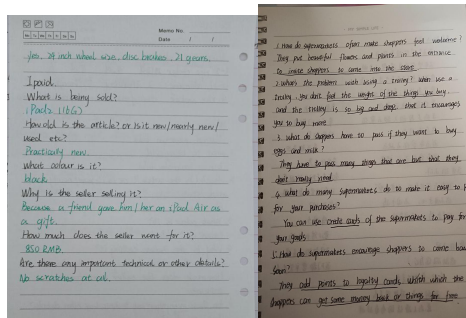 Memo No.
Date / /
Yes. 24 inch wheel size. disc brakes. 21 gears.
I paid.
What is being sold?
iPad2 (16G)
How old is the article? or Is it new/nearly new/
used etc?
Practically new.
What colour is it?
black
Why is the seller selling it?
Because a friend gave him/her an iPad Air as
a gift.
How much does the seller want for it?
850 RMB
Are there any important technical or other details?
No scratches at all.
1. How do supermarkets often make shoppers feel welcome?
They put beautiful flowers and plants in the entrance
To invite shoppers to come into the store
2. What's the problem with using a trolley? When use a
trolley, you don't feel the weight of the things you buy.
and the trolley is so big and deep that it encourages
you to buy more
3. what do shoppers have to pass if they want to buy
eggs and milk?
They have to pass many things that are but that they
don't really need
4. what do many supermarkets do to make it easy to p
for your purchases?
You can use credit cards of the supermarkets to pay for
your goods
5. How do supermarkets encourage shoppers to come bac
soon?
They add points to loyalty cards which the
shoppers can get some money back or things for free